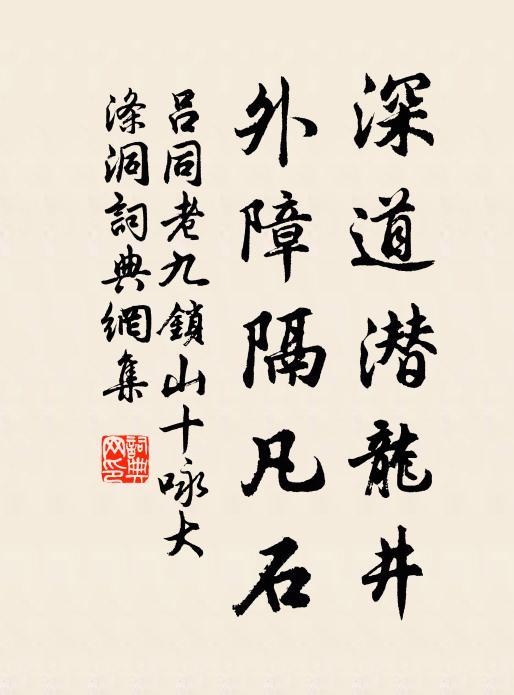 深道潜龍井
外障隔凡石
吕同老九鎖山十咏大
滌洞詞典網集
詞典网印